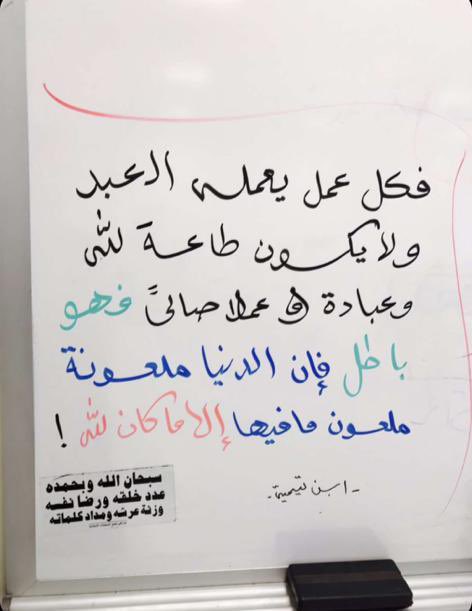 فكل عمل يعمله العبد
ولا يكون طاعة لله
وعبادة او عملا صالحًا فهو
باطل فإن الدنيا ملعونة
ملعون ما فيها إلا ما كان لله !
- ابن تيمية -
سبحان الله وبحمده
عدد خلقه ورضا نفسه
وزنة عرشه ومداد كلماته